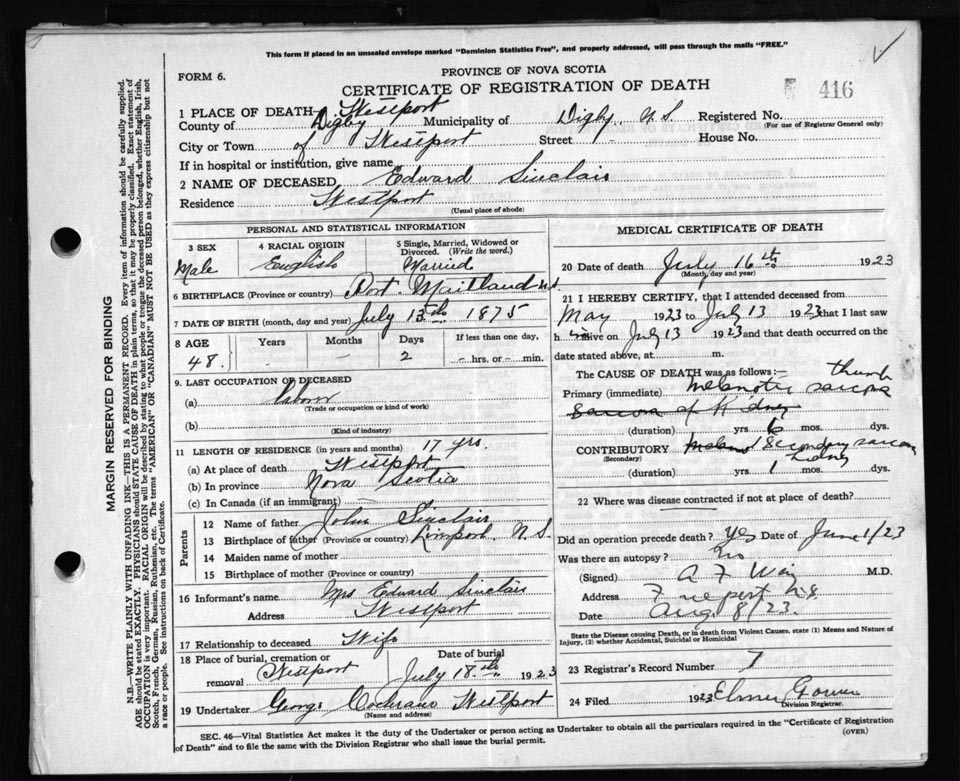 This form if placed in an unsealed envelope marked "Dominion Statistics Free", and properly addressed, will pass through the mails "FREE."
FORM 6.
PROVINCE OF NOVA SCOTIA
CERTIFICATE OF REGISTRATION OF DEATH
416
1 PLACE OF DEATH Westport
County of Digby Municipality of Digby N.S. Registered No.
(For use of Registrar General only)
City or Town of Westport Street - House No.
If in hospital or institution, give name
2 NAME OF DECEASED Edward Sinclair
Residence Westport
(Usual place of abode)
PERSONAL AND STATISTICAL INFORMATION
3 SEX Male
4 RACIAL ORIGIN English
5 Single, Married, Widowed or Divorced. (Write the word.) Married
6 BIRTHPLACE (Province or country) Port Maitland N.S.
7 DATE OF BIRTH (month, day and year) July 13th 1875
8 AGE Years Months Days If less than one day,
48. - 2 - hrs. or - min.
9. LAST OCCUPATION OF DECEASED
(a) Labour
(Trade or occupation or kind of work)
(b)
(Kind of industry)
11 LENGTH OF RESIDENCE (in years and months) 17 yrs.
(a) At place of death Westport
(b) In province Nova Scotia
(c) In Canada (if an immigrant)
Parents
12 Name of father John Sinclair
13 Birthplace of father (Province or country) N.S.
14 Maiden name of mother
15 Birthplace of mother (Province or country)
16 Informant's name Mrs Edward Sinclair
Address Westport
17 Relationship to deceased Wife
18 Place of burial, cremation or removal Westport
Date of burial July 18th 1923
19 Undertaker George Cochrane Westport
(Name and address)
MEDICAL CERTIFICATE OF DEATH
20 Date of death July 16th 1923
(Month, day and year)
21 I HEREBY CERTIFY, that I attended deceased from
May 1923 to July 13 1923 that I last saw
h im alive on July 13 1923 and that death occurred on
date stated above, at m.
The CAUSE OF DEATH was as follows:- thumb
Primary (immediate) melanotic sarcoma
Sarcoma of Kidney
(duration) yrs. 6 mos. dys.
CONTRIBUTORY Secondary sarcoma
(Secondary) Kidney
(duration) yrs. 1 mos. dys.
22 Where was disease contracted if not at place of death?
Did an operation precede death? Yes Date of June 1/23
Was there an autopsy? No
(Signed) A F M.D.
Address N.S.
Date Aug 8/23.
State the Disease causing Death, or in death from Violent Causes, state (1) Means and Nature of Injury, (2) whether Accidental, Suicidal or Homicidal
23 Registrar's Record Number 7
24 Filed 1923 Elmer Gower
Division Registrar.
SEC. 46-Vital Statistics Act makes it the duty of the Undertaker or person acting as Undertaker to obtain all the particulars required in the "Certificate of Registration
of Death" and to file the same with the Division Registrar who shall issue the burial permit.
(OVER)
MARGIN RESERVED FOR BINDING
N.B.-WRITE PLAINLY WITH UNFADING INK-THIS IS A PERMANENT RECORD. Every item of information should be carefully supplied.
AGE should be stated EXACTLY. PHYSICIANS should STATE CAUSE OF DEATH in plain terms, so that it may be properly classified. Exact statement of
OCCUPATION is very important. RACIAL ORIGIN will be described by stating to what people or tongue the deceased person belonged, whether English, Irish,
Scotch, French, German, Russian, Ruthenian, etc. The terms "AMERICAN" or "CANADIAN" MUST NOT BE USED as they express citizenship but not
a race or people. See instructions on back of Certificate.